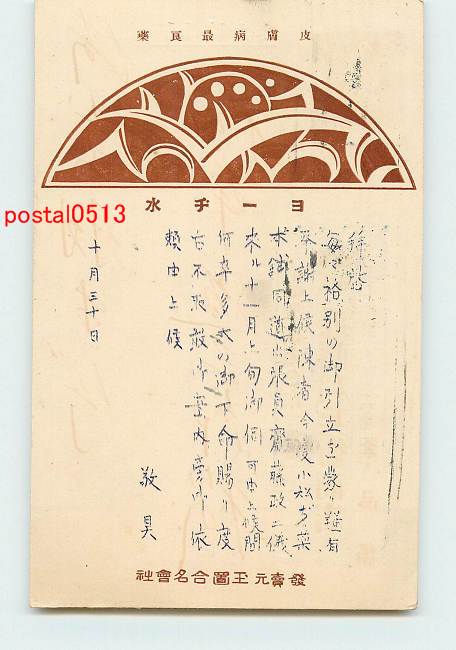 皮膚病最良藥
ヨーチ水
拝啓
毎々格別の御引立を蒙り難有
奉謝上候陳者今度小社ヂ薬
本鋪同道出張員齋藤政二儀
来ル十一月上旬御伺可申上候間
何卒多大の御下命賜り度
右不取敢御案内旁御依
頼申上候
敬具
十月三十日
發賣元玉置合名會社
postal0513